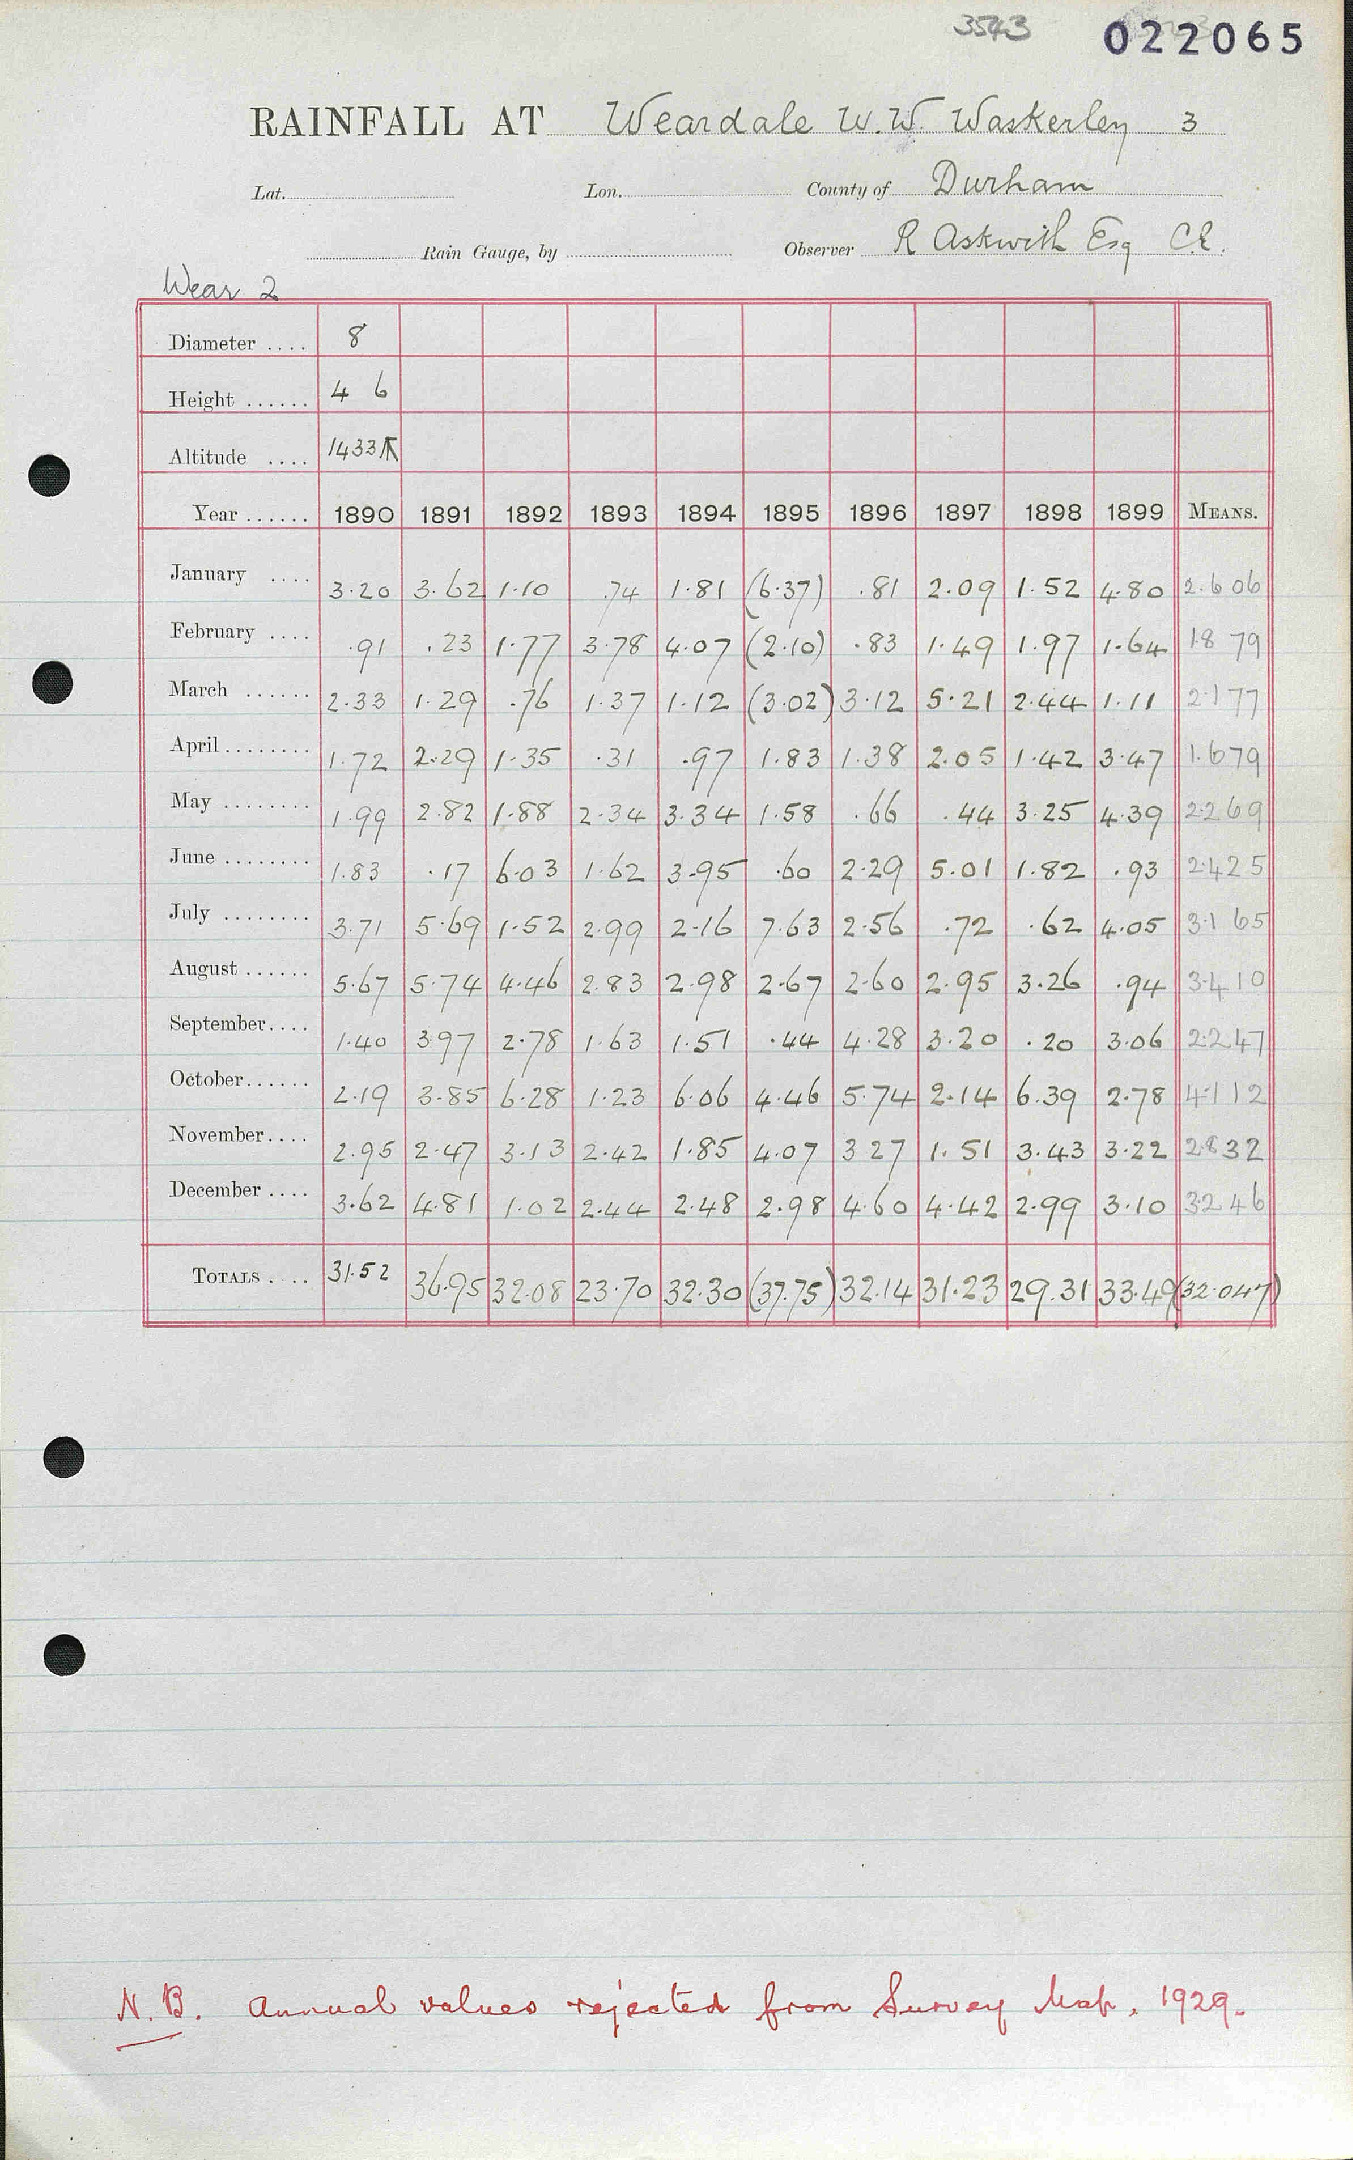 3543 022065
RAINFALL AT Weardale W.W. Waskerley 3
Lat. Lon. County of Durham
Rain Gauge, by Observer R Askwith Esq C.E.
Wear 2
Diameter .... 8
Height ...... 4 6
Altitude .... 1433
Year ...... 1890 1891 1892 1893 1894 1895 1896 1897 1898 1899 MEANS.
January .... 3.20 3.62 1.10 .74 1.81 (6.37) .81 2.09 1.52 4.80 2.606
February .... .91 .23 1.77 3.78 4.07 (2.10) .83 1.49 1.97 1.64 18 79
March ...... 2.33 1.29 .76 1.37 1.12 (3.02) 3.12 5.21 2.44 1.11 2.177
April ........ 1.72 2.29 1.35 .31 .97 1.83 1.38 2.05 1.42 3.47 1.679
May ........ 1.99 2.82 1.88 2.34 3.34 1.58 .66 .44 3.25 4.39 2.269
June ........ 1.83 .17 6.03 1.62 3.95 .60 2.29 5.01 1.82 .93 2.425
July ........ 3.71 5.69 1.52 2.99 2.16 7.63 2.56 .72 .62 4.05 3.165
August ...... 5.67 5.74 4.46 2.83 2.98 2.67 2.60 2.95 3.26 .94 3.410
September.... 1.40 3 97 2.78 1.63 1.51 .44 4.28 3.20 .20 3.06 2.247
October...... 2.19 3.85 6.28 1.23 6.06 4.46 5.74 2.14 6.39 2.78 4.112
November.... 2.95 2.47 3.13 2.42 1.85 4.07 3 27 1.51 3.43 3.22 2.832
December .... 3.62 4.81 1.02 2.44 2.48 2.98 4.60 4.42 2.99 3.10 3.246
TOTALS .... 31.52 36.95 32.08 23.70 32.30 (37.75) 32.14 31.23 29.31 33.49 (32.047)
N.B. Annual values rejected from Survey Map, 1929.